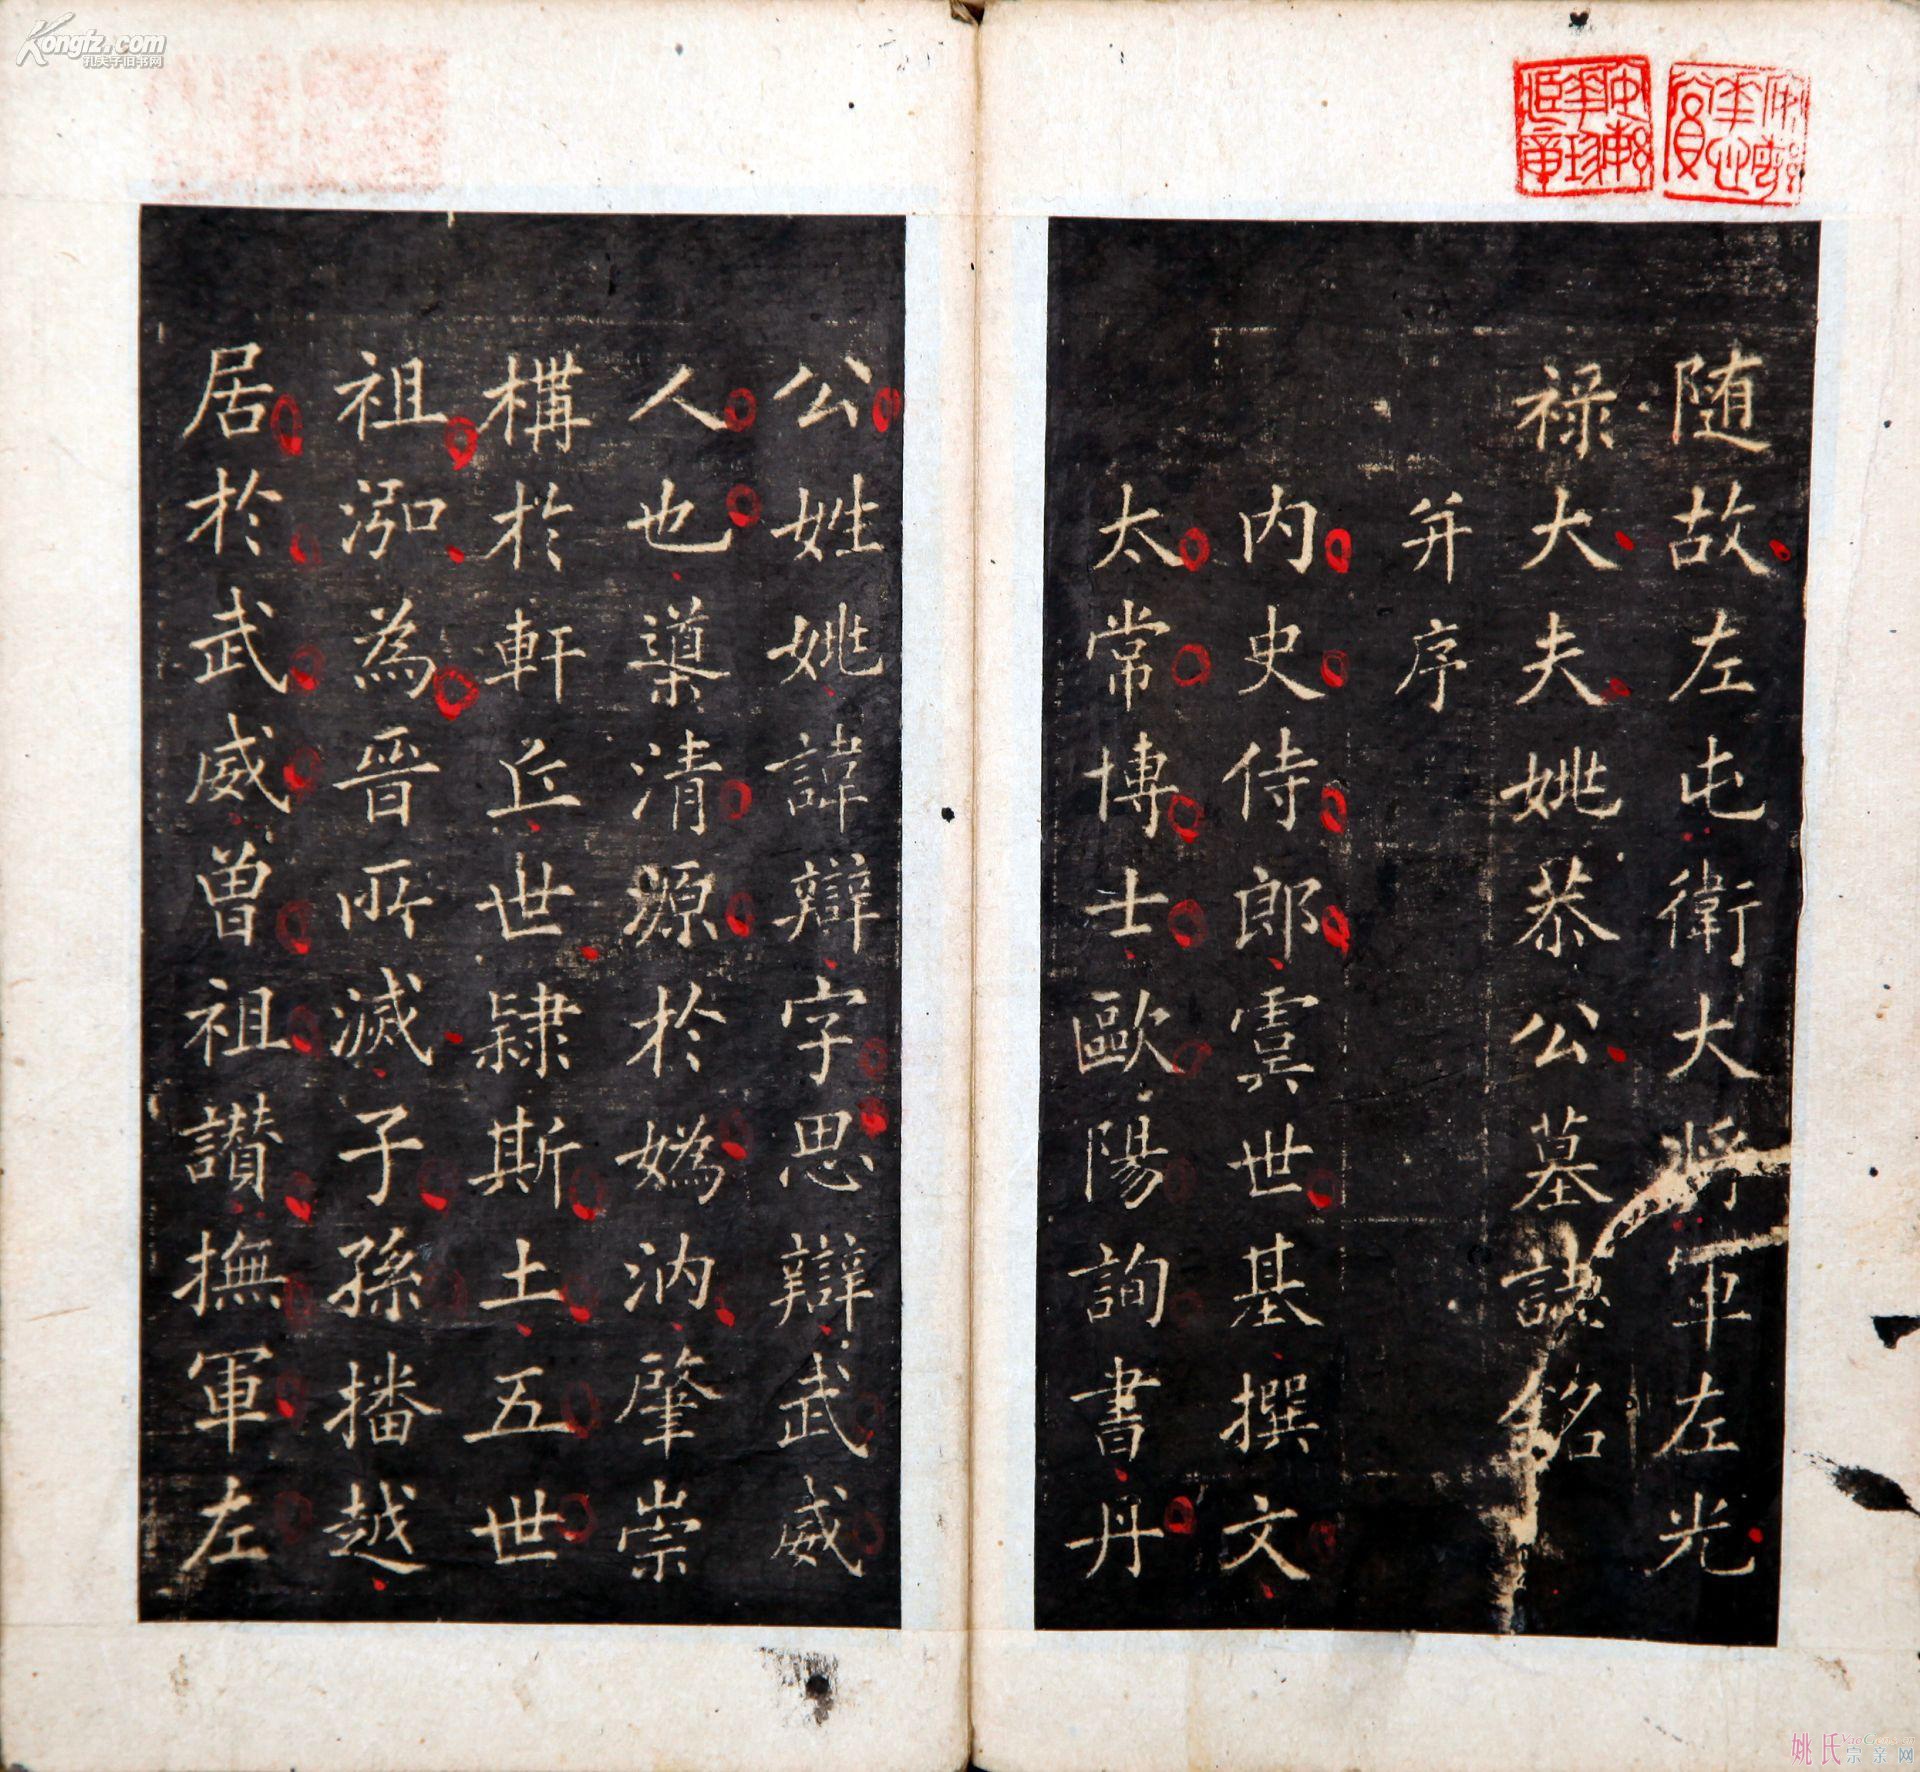 随故左屯衛大将軍左光
禄大夫姚恭公墓誌銘
并序
内史侍郎虞世基撰文
太常博士歐陽詢書丹
公姓姚諱辯字思辯武威
人也導清源於嬀汭肇崇
構於軒丘世隸斯土五世
祖泓為晉所滅子孫播越
居於武威曽祖讃撫軍左
Kongfz.com
孔夫子旧书网
姚氏宗亲网